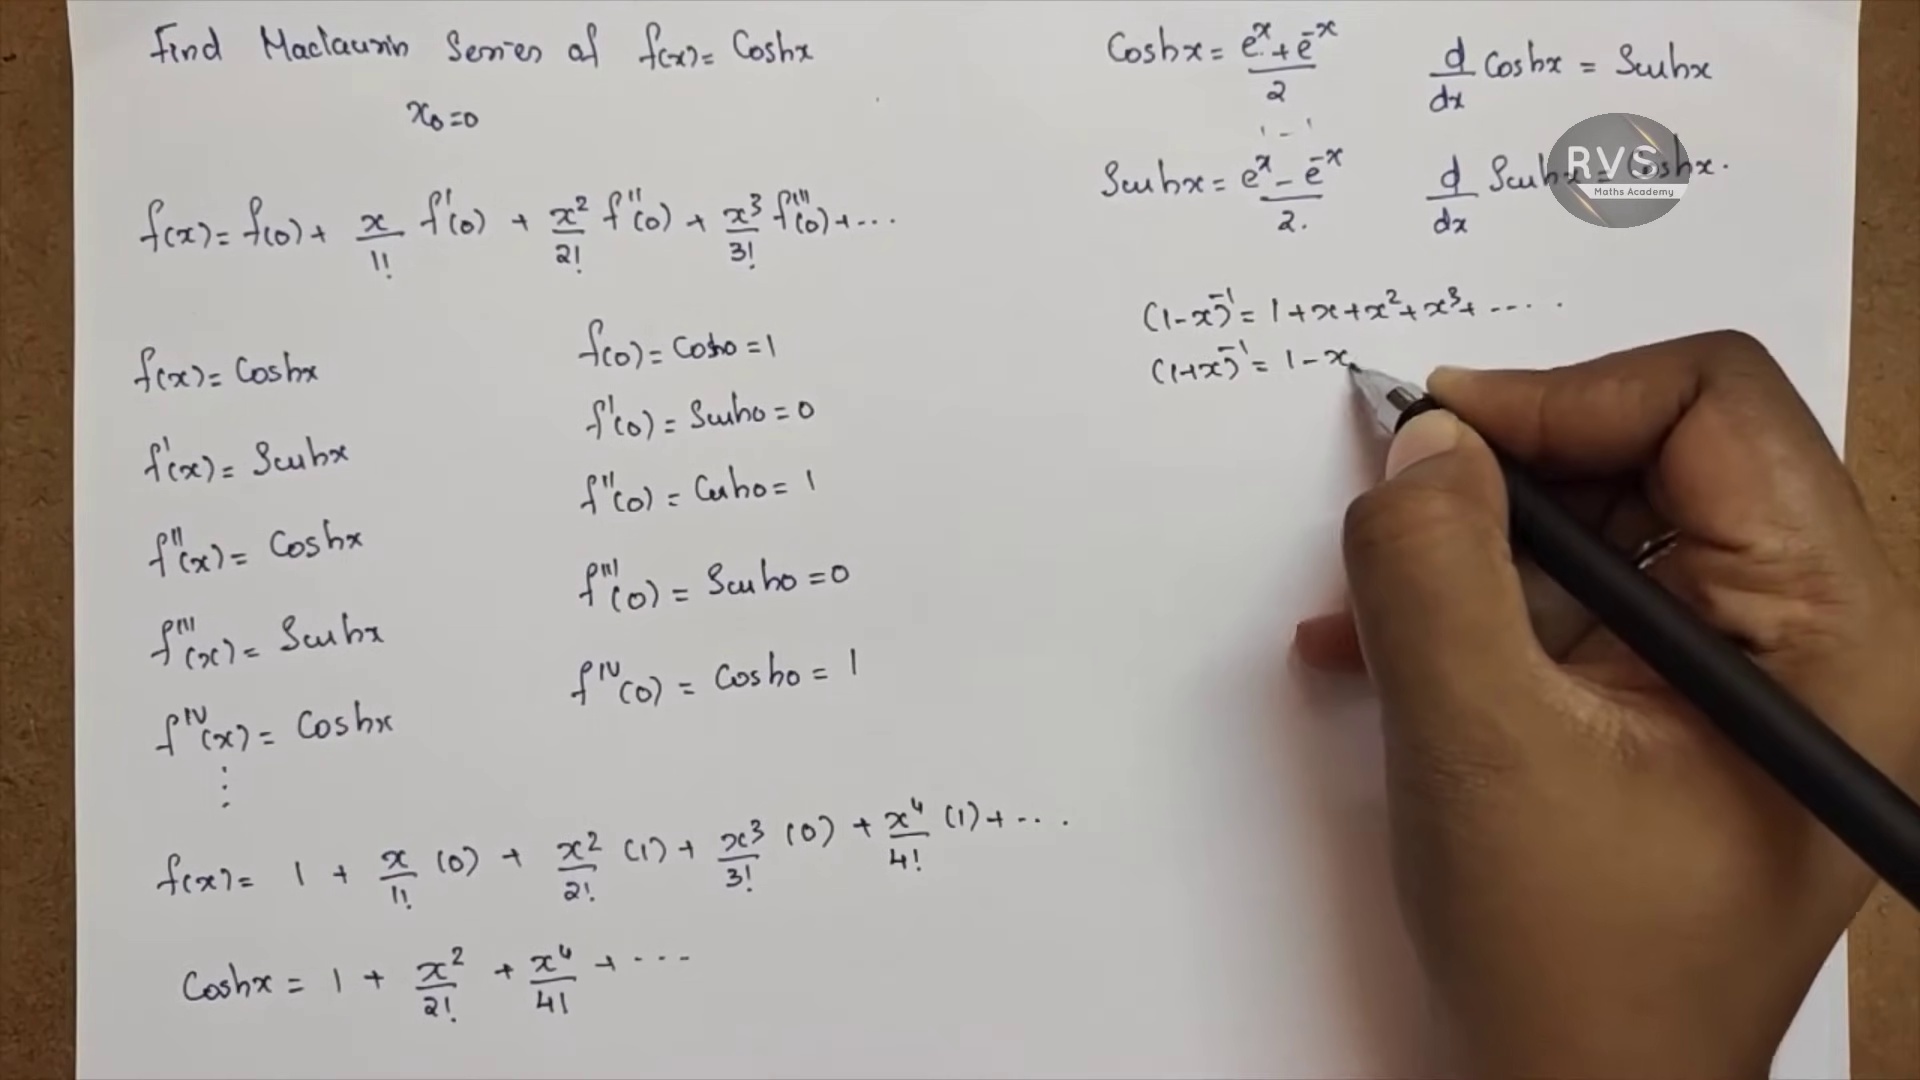 Find Maclaurin Series of f(x) = Coshx
x₀=0
f(x) = f(0) + x/1! f'(0) + x²/2! f''(0) + x³/3! f'''(0) + ...
f(x) = Coshx
f'(x) = Sinhx
f''(x) = Coshx
f'''(x) = Sinhx
f^IV(x) = Coshx
⋮
f(0) = Cosh0 = 1
f'(0) = Sinh0 = 0
f''(0) = Cosh0 = 1
f'''(0) = Sinh0 = 0
f^IV(0) = Cosh0 = 1
f(x) = 1 + x/1! (0) + x²/2! (1) + x³/3! (0) + x⁴/4! (1) + ...
Coshx = 1 + x²/2! + x⁴/4! + ...
Coshx = (e^x + e^-x)/2
d/dx Coshx = Sinhx
1 - 1
Sinhx = (e^x - e^-x)/2.
d/dx Sinhx = Coshx.
RVS
Maths Academy
(1-x)^-1 = 1 + x + x² + x³ + ....
(1+x)^-1 = 1 - x